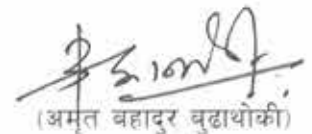 (अमृत बहादुर बुढाथोकी)